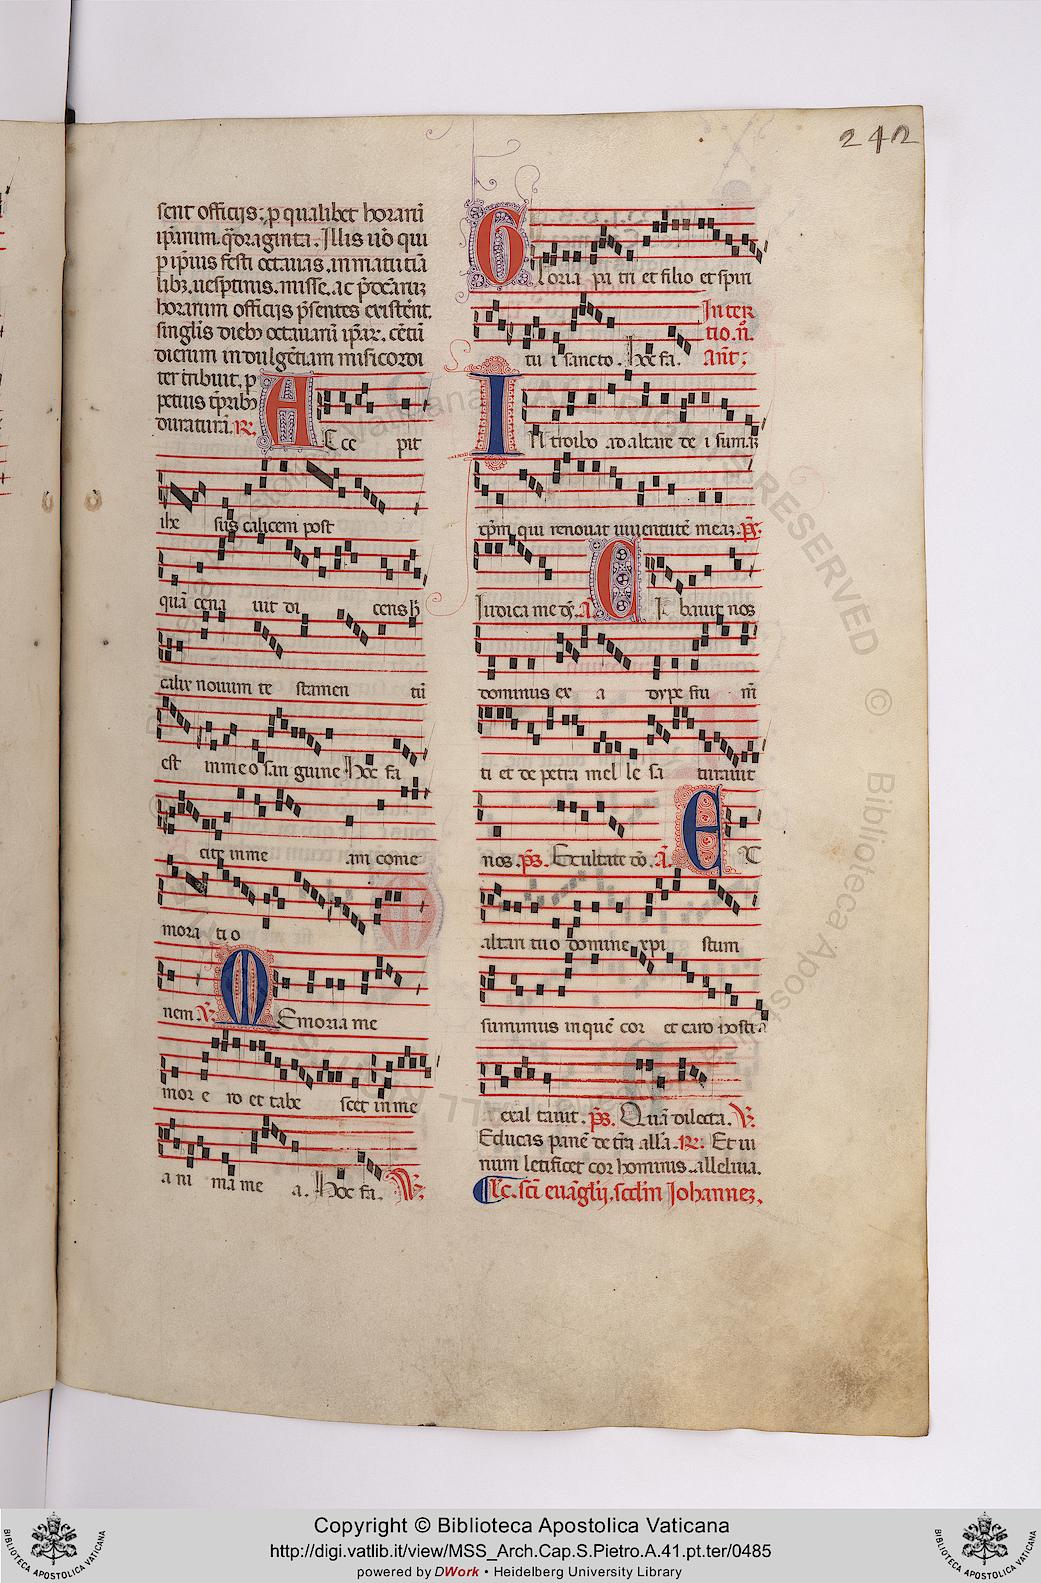 242
sent officijs: p qualibet horarũ
ip̃arum. q̃draginta. Illis ṽo qui
p ip̃ius festi octauas. in matutiñ
libꝫ. uesptinis. misse. ac p̃dcãruꝫ
horarum officijs p̃sentes existẽnt.
singlis diebꝫ octauarũ ip̃ar. cẽtũ
dierum indulgẽtiam misicordi
ter tribuit. p
petuis tp̃ribꝫ
duraturã. R̃. A
C ce pit
ihe sus calicem post
quã cena uit di cens h̃
calix nouum te stamen tũ
est in meo san guine. Hoc fa
cite in me am come
mora ti o
nem. V̓. M Emoria me
mor e ro et tabe scet in me
a ni ma me a. Hoc fa. V̓.
G Loria pa tri et filio et spiri
tu i sancto. Hoc fa.
In ter
tio. ñ.
Ant̃:
I N troibo ad altare de i sumaꝫ
xp̃m qui renouat iuuentutẽ meaꝫ. p̃s.
Iudica me dς̃. A. C I bauit nos
dominus ex a dype fru m̃
ti et de petra mel le sa turauit
nos. p̃s. Exultate dõ. A. E X
altari tuo domine xpi stum
sumimus in quẽ cor et caro nostra
exal tauit. p̃s. Quã dilecta. V̓.
Educas panẽ de tr̃a alla. R̃. Et ui
num letificet cor hominis. alleluia.
Lc̃. sc̃i euãglij. scd̃m Johanneꝫ.
Copyright © Biblioteca Apostolica Vaticana
http://digi.vatlib.it/view/MSS_Arch.Cap.S.Pietro.A.41.pt.ter/0485
powered by DWork • Heidelberg University Library
BIBLIOTECA APOSTOLICA VATICANA
BIBLIOTECA APOSTOLICA VATICANA